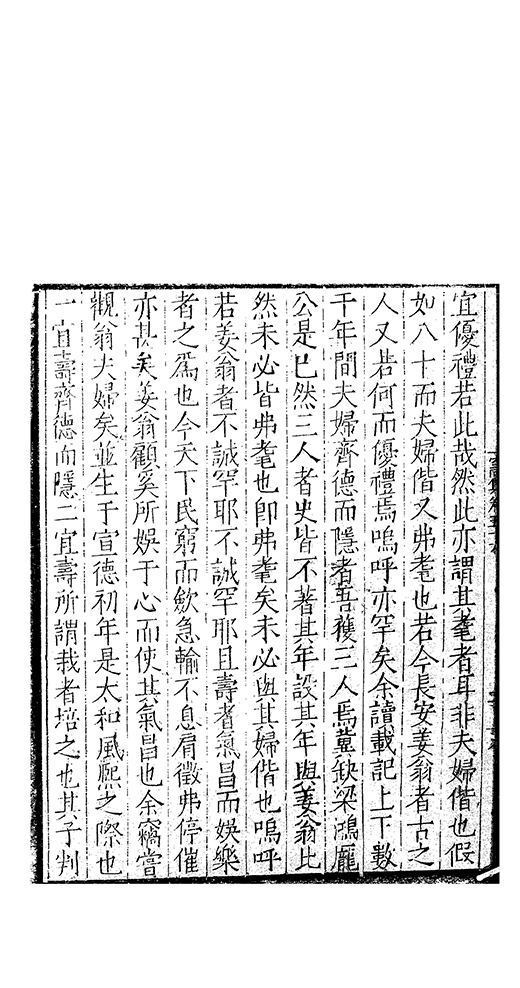 宜優禮若此哉然此亦謂其耄者耳非夫婦偕也假
如八十而夫婦偕又弗耄也若今長安姜翁者古之
人又若何而優禮焉嗚呼亦罕矣余讀載記上下數
千年間夫婦齊德而隱者吾獲三人焉冀缺梁鴻龐
公是已然三人者史皆不著其年設其年與姜翁比
然未必皆弗耄也即弗耄矣未必與其婦偕也嗚呼
若姜翁者不誠罕耶不誠罕耶且壽者氣昌而娛樂
者之爲也今天下民窮而歛急輸不息肩徵弗停催
亦甚矣姜翁顧奚所娛于心而使其氣昌也余竊嘗
觀翁夫婦矣並生于宣德初年是太和風熈之際也
一宜壽齊德而隱二宜壽所謂栽者培之也其子判